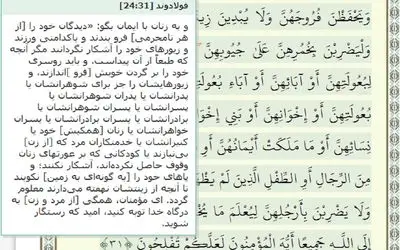 فولادوند [24:31]
و به زنان با ایمان بگو: «دیدگان خود را [از
هر نامحرمی] فرو بندند و پاکدامنی ورزند
و زیورهای خود را آشکار نگردانند مگر آنچه
که طبعاً از آن پیداست. و باید روسری
خود را بر گردن خویش [فرو ]اندازند، و
زیورهایشان را جز برای شوهرانشان یا
پدرانشان یا پدران شوهرانشان یا
پسرانشان یا پسران شوهرانشان یا
برادرانشان یا پسران برادرانشان یا پسران
خواهرانشان یا زنان [همکیش] خود یا
کنیزانشان یا خدمتکاران مرد که [از زن]
بی‌نیازند یا کودکانی که بر عورتهای زنان
وقوف حاصل نکرده‌اند، آشکار نکنند؛ و
پاهای خود را [به گونه‌ای به زمین] نکوبند
تا آنچه از زینتشان نهفته می‌دارند معلوم
گردد. ای مؤمنان، همگی [از مرد و زن] به
درگاه خدا توبه کنید، امید که رستگار
شوید.
وَيَحْفَظْنَ فُرُوجَهُنَّ وَلَا يُبْدِينَ
وَلْيَضْرِبْنَ بِخُمُرِهِنَّ عَلَىٰ جُيُوبِهِنَّ
لِبُعُولَتِهِنَّ أَوْ آبَائِهِنَّ أَوْ آبَاءِ
بُعُولَتِهِنَّ أَوْ إِخْوَانِهِنَّ أَوْ بَنِي إِخْوَانِهِنَّ
نِسَائِهِنَّ أَوْ مَا مَلَكَتْ أَيْمَانُهُنَّ أَوِ
مِنَ الرِّجَالِ أَوِ الطِّفْلِ الَّذِينَ لَمْ
وَلَا يَضْرِبْنَ بِأَرْجُلِهِنَّ لِيُعْلَمَ مَا
إِلَى اللَّهِ جَمِيعًا أَيُّهَ الْمُؤْمِنُونَ لَعَلَّكُمْ تُفْلِحُونَ ﴿٣١﴾